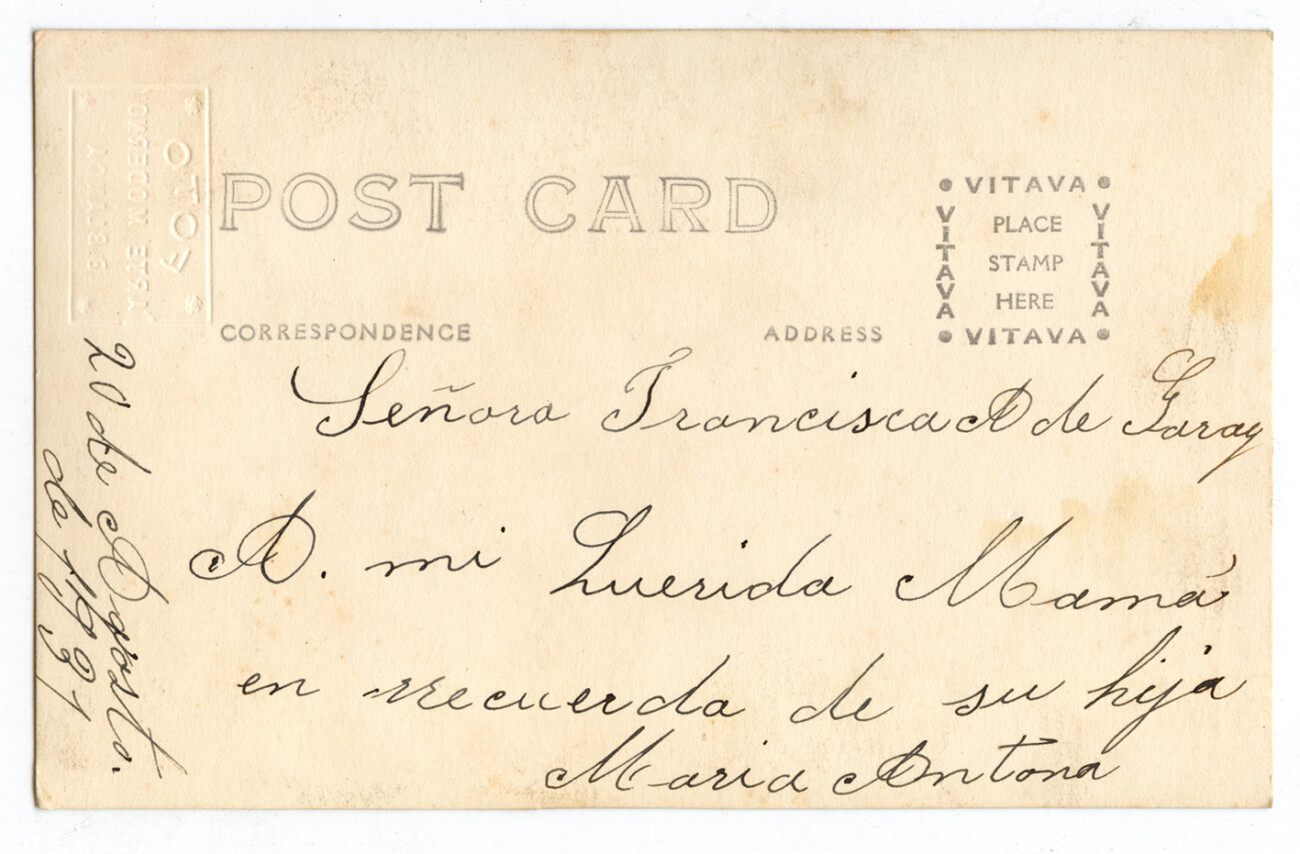 FOTO
ARTE MODERNO
POST CARD
VITAVA
VITAVA
PLACE
STAMP
HERE
VITAVA
VITAVA
CORRESPONDENCE
ADDRESS
Señora Francisca A de Garay
A. mi Querida Mamá
en rrecuerda de su hija
Maria Antona
20 de Agosto.
de 1931